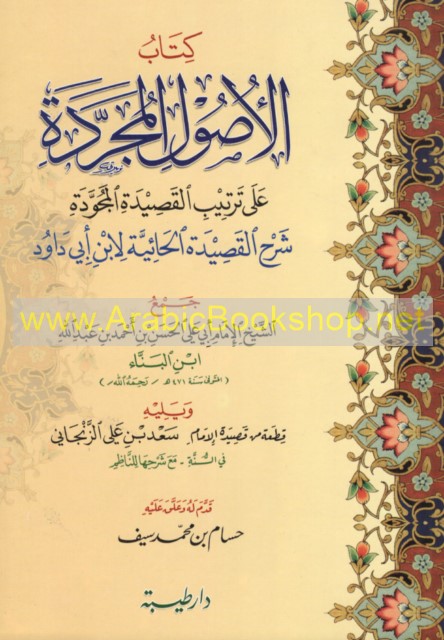 كِتَابُ
الأُصُولِ المُجَرَّدَةِ
عَلَى تَرْتِيبِ القَصِيدَةِ المُجَوَّدَةِ
شَرْحُ القَصِيدَةِ الحَائِيَّةِ لِابْنِ أَبِي دَاوُد
جَمْعُ
www.ArabicBookshop.net
الشَّيْخِ الإِمَامِ أَبِي عَلِيٍّ الحَسَنِ بْنِ أَحْمَدَ بْنِ عَبْدِ اللَّهِ
ابْنِ البَنَّاءِ
(المتوفى سَنَة ٤٧١ هـ / رَحِمَهُ اللَّه /)
وَيَلِيهِ
قِطْعَة من قَصِيدَةِ الإِمَامِ سَعْدِ بْنِ عَلِيٍّ الزَّنْجَانِيِّ
فِي السُّنَّةِ - مَعَ شَرْحِهَا لِلنَّاظِمِ
قَدَّمَ لَهُ وَعَلَّقَ عَلَيْهِ
حسام بن محمّد سيف
دار طيبة